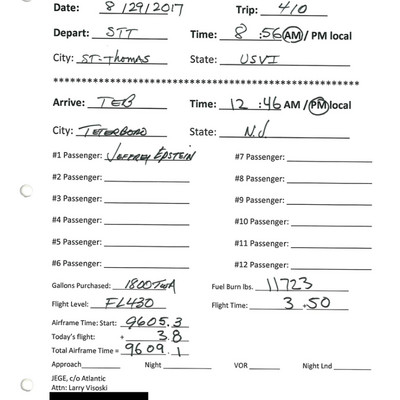 Date: 8/29/2017 Trip: 410
Depart: STT Time: 8:56 AM / PM local
City: ST-THOMAS State: USVI
************************************************************
Arrive: TEB Time: 12:46 AM / PM local
City: TETERBORO State: NJ
#1 Passenger: JEFFREY EPSTEIN #7 Passenger:
#2 Passenger: #8 Passenger:
#3 Passenger: #9 Passenger:
#4 Passenger: #10 Passenger:
#5 Passenger: #11 Passenger:
#6 Passenger: #12 Passenger:
Gallons Purchased: 1800 Fuel Burn lbs. 11723
Flight Level: FL430 Flight Time: 3.50
Airframe Time: Start: 9605.3
Today's flight: + 3.8
Total Airframe Time = 9609.1
Approach Night VOR Night Lnd
JEGE, c/o Atlantic
Attn: Larry Visoski